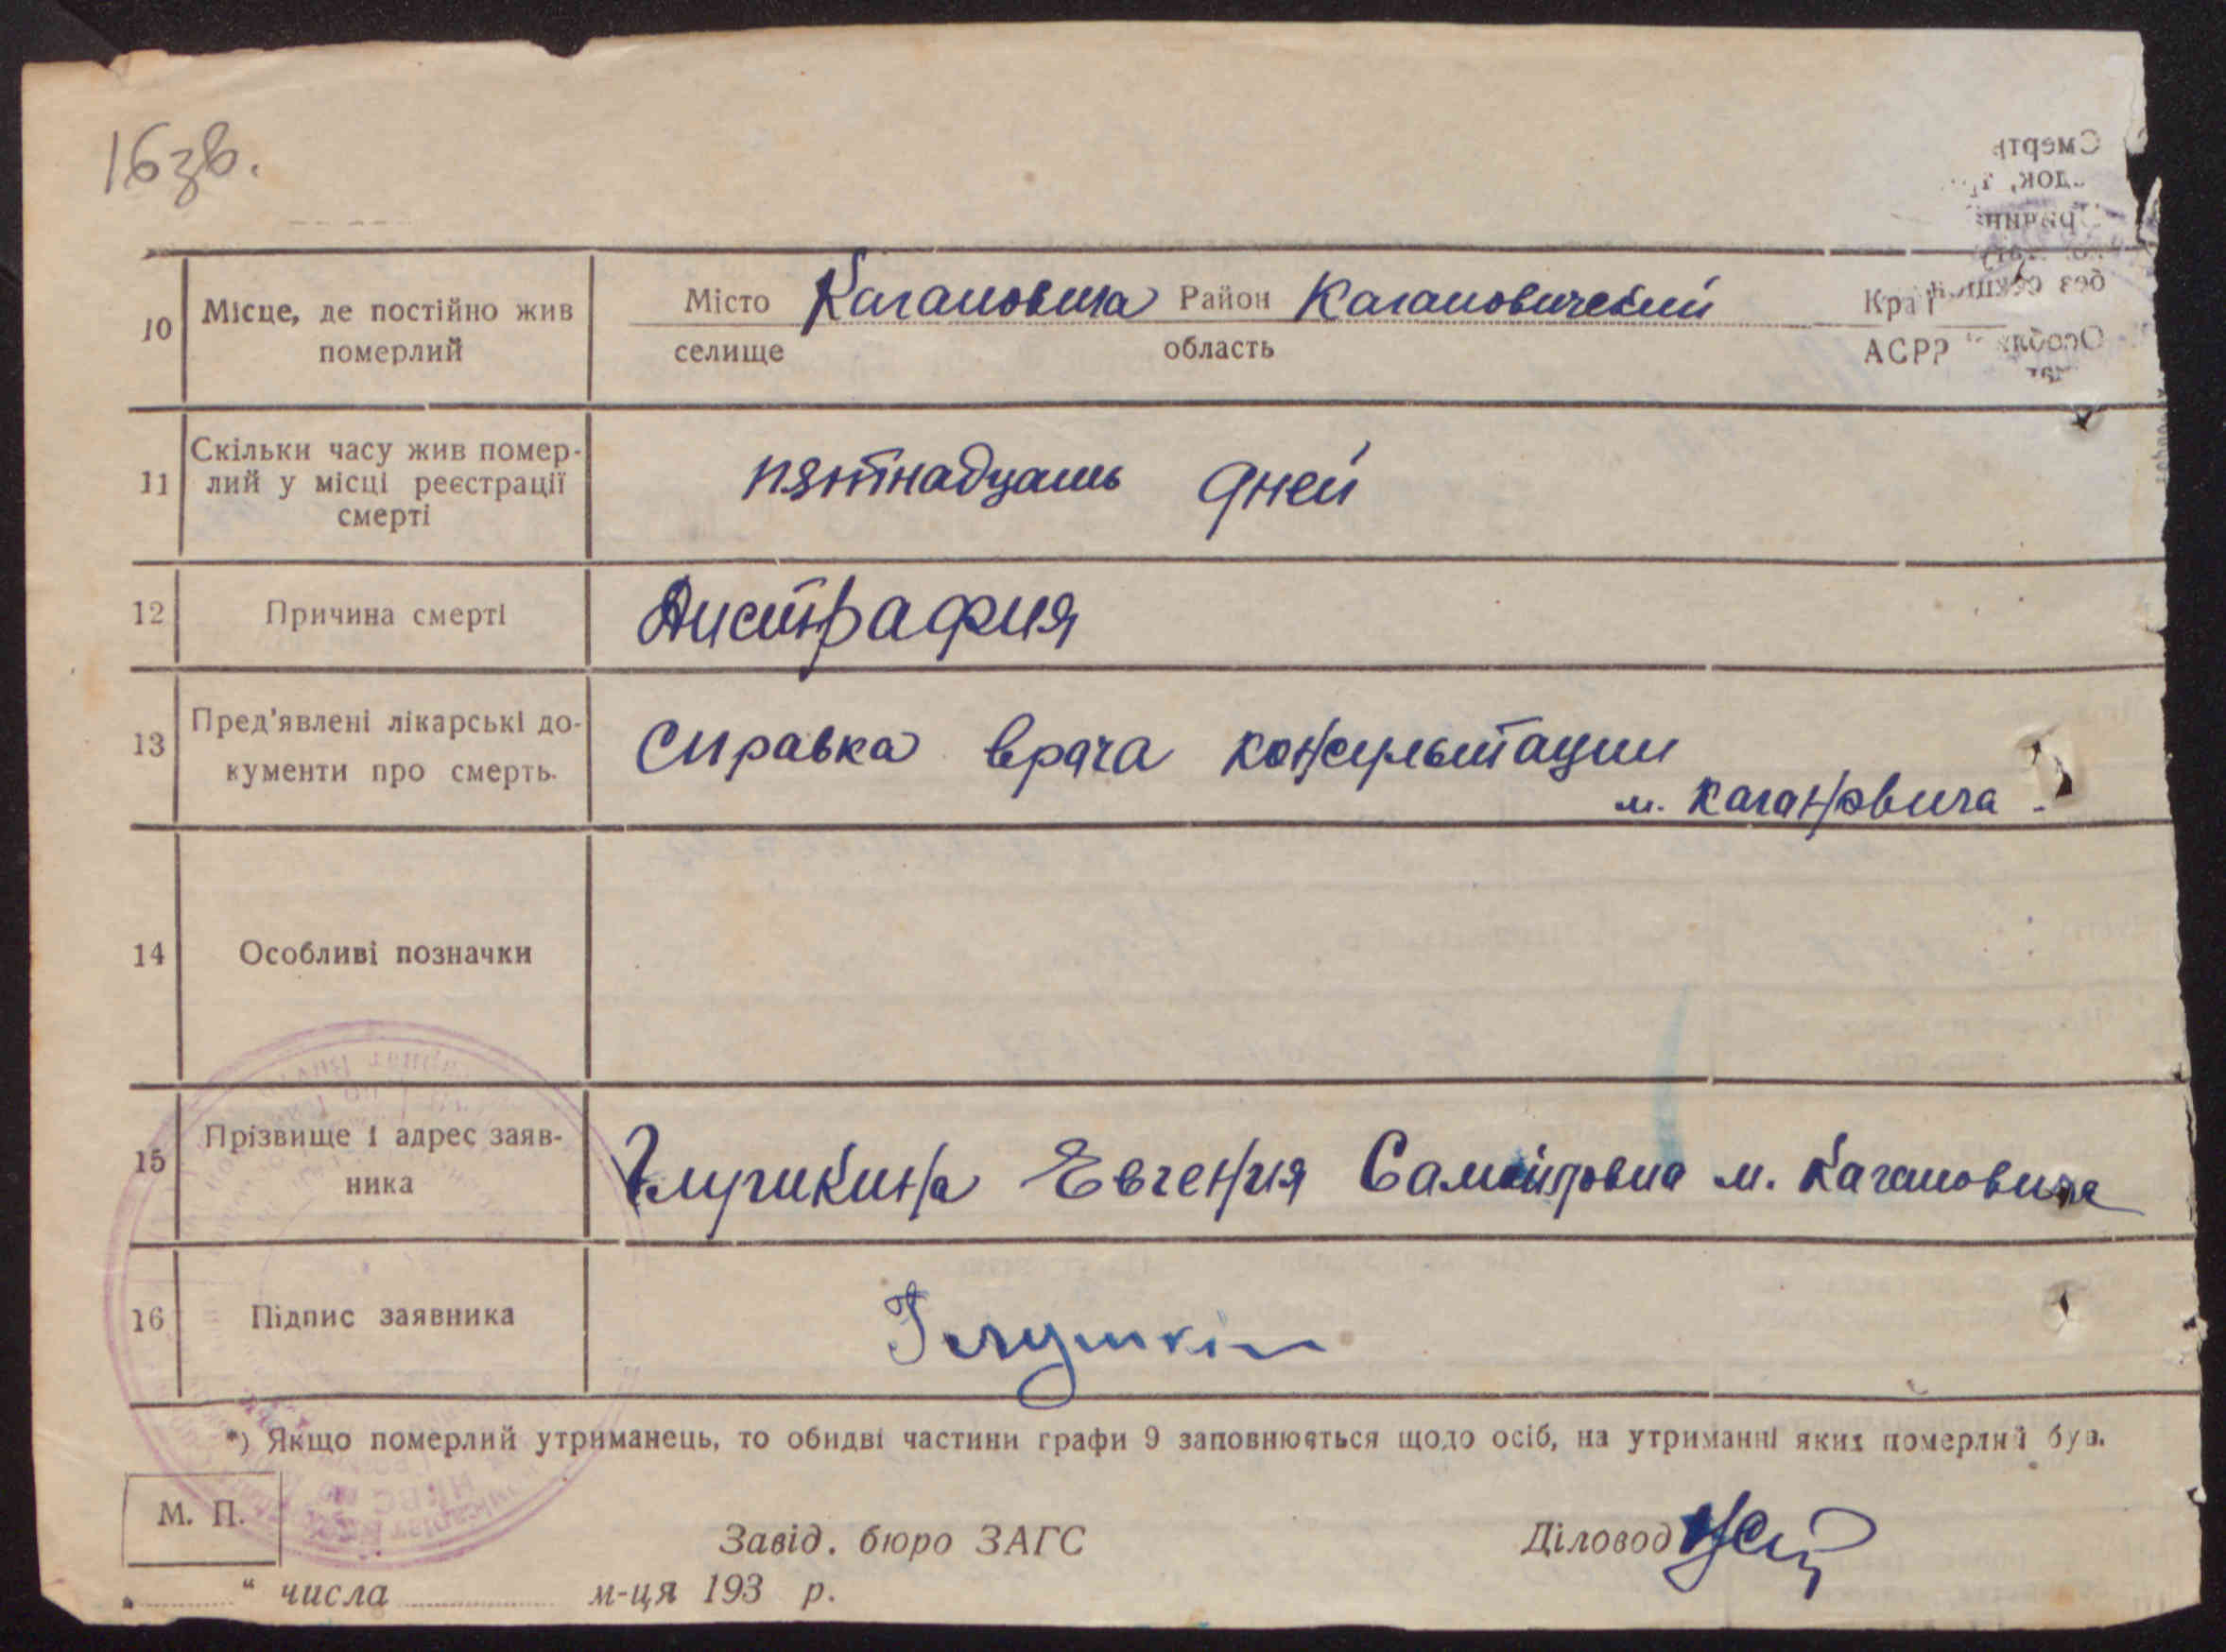 16 зв.
10 Місце, де постійно жив померлий
Місто Кагановича Район Кагановический Край
селище область АСРР
11 Скільки часу жив помер-
лий у місці реєстрації
смерті
пятнадцать дней
12 Причина смерті Дистрафия
13 Пред'явлені лікарські до-
кументи про смерть.
Справка врача консультации
м. Кагановича
14 Особливі позначки
15 Прізвище і адрес заяв-
ника
Глушкина Евгения Самойловна м. Кагановича
16 Підпис заявника Глушкін
*) Якщо померлий утриманець, то обидві частини графи 9 заповнюється щодо осіб, на утриманні яких померлий був.
М. П.
Завід. бюро ЗАГС Діловод
„ “ числа м-ця 193 р.